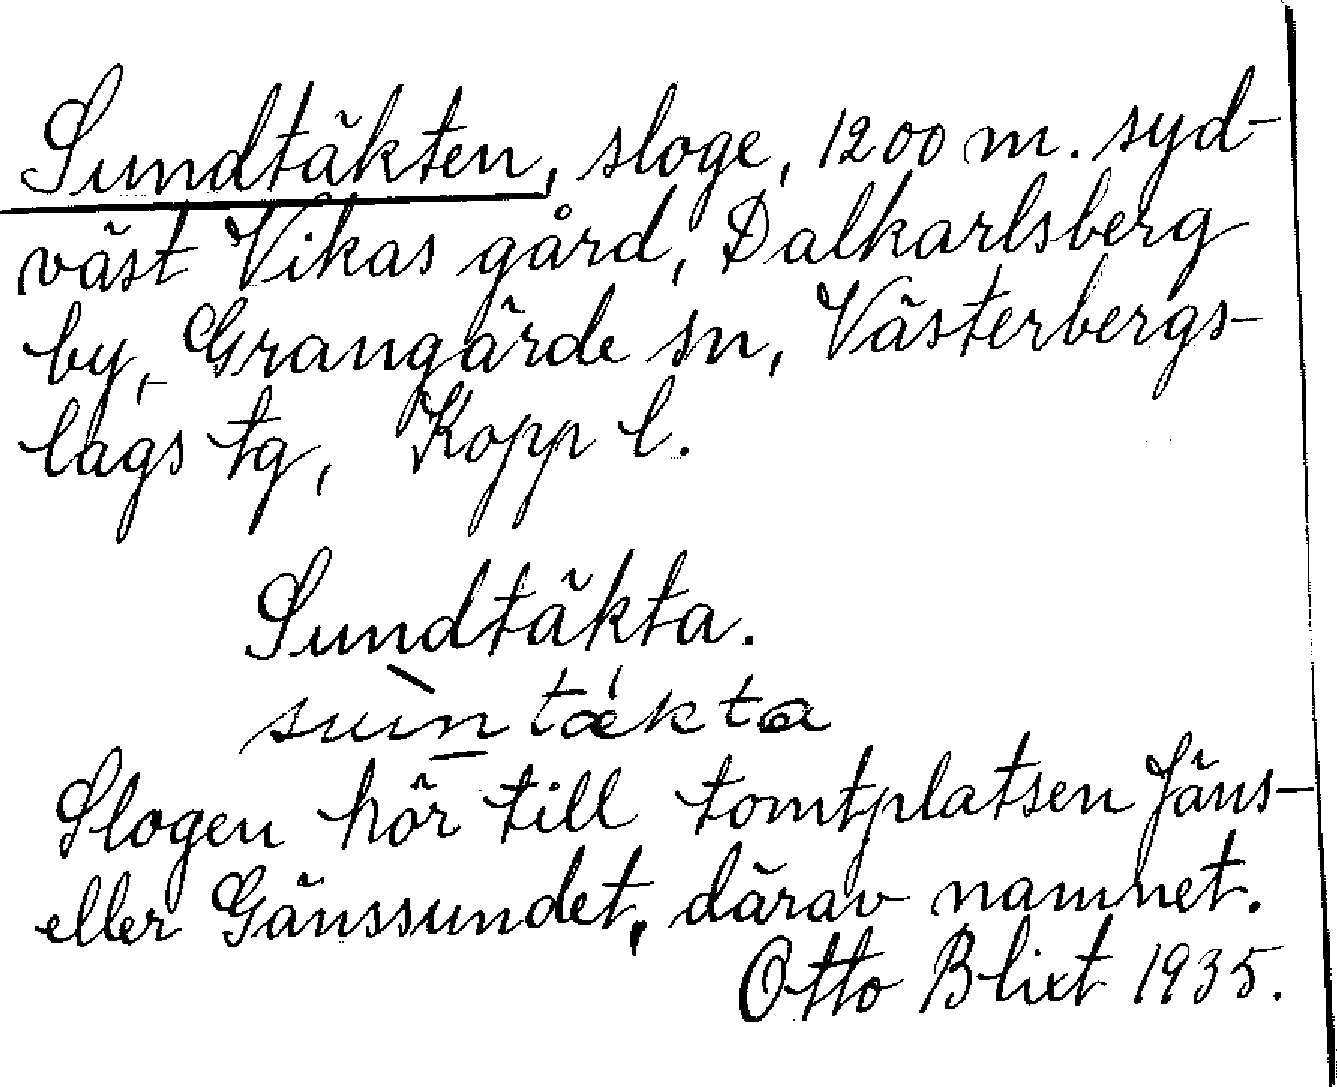 Sundtäkten, sloge, 1200 m. syd-
väst Vikas gård, Dalkarlsberg
by, Grangärde sn, Västerbergs-
lags tg, Kopp l.
Sundtäkta.
Slogen hör till tomtplatsen Jäns-
eller Gänssundet, därav namnet.
Otto Blixt 1935.